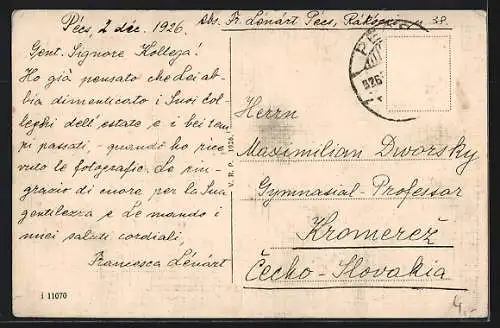 Pécs, 2 déc. 1926.
Abs. Fr. Lénárt Pécs, Rákóczi 38.
Gent. Signore Kollega!
Ho già pensato che Lei ab-
bia dimenticato i Suoi col-
leghi dell'estate e i bei tem
pi passati, quando ho rice-
vuto le fotografie. La rin-
grazio di cuore per la Sua
gentilezza e Le mando i
miei saluti cordiali.
Francesca Lénárt
V. R. P. 1926.
Herrn
Maximilian Dworsky
Gymnasial-Professor
Kromerež
Čecho-Slovakia
i 11070
4,-